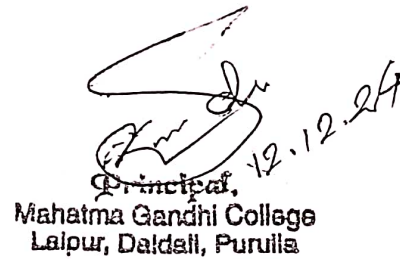 12.12.24
Principal,
Mahatma Gandhi College
Lalpur, Daldali, Purulia